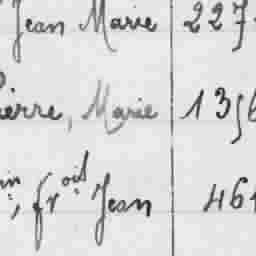 Jean Marie 227
ierre, Marie 1356
in, frçois Jean 461